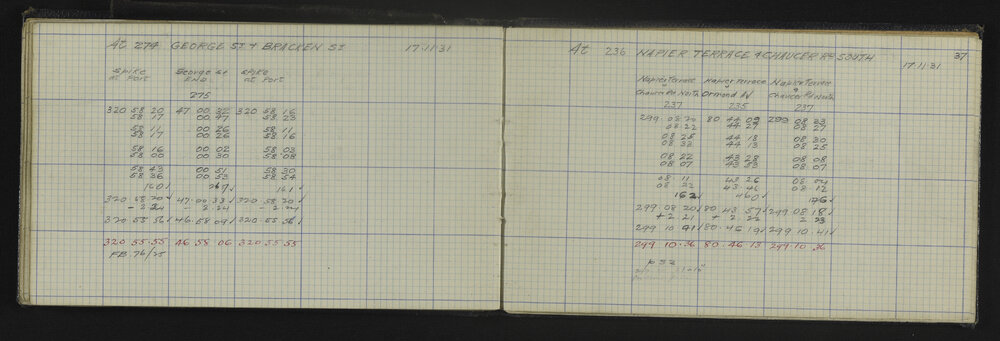 At 274 GEORGE ST & BRACKEN ST 17.11.31
Spike George St Spike
at Port END at Port
275
320 58 20 47 00 32 320 58 16
58 17 00 47 58 23
58 11 00 26 58 11
58 17 00 26 58 16
58 16 00 02 58 03
58 00 00 30 58 08
58 43 00 51 58 30
58 36 00 53 58 54
160✓ 267✓ 161✓
320 58 20✓ 47.00 33✓ 320 58 20✓
- 2 24 - 2 24 - 2 24
320 55 56✓ 46.58 09✓ 320.55 56✓
320 55 55 46 58 06 320 55 55
FB. 76/25
37
At 236 NAPIER TERRACE & CHAUCER RD SOUTH
17.11.31
Napier Terrace Napier Terrace Napier Terrace
Chaucer Rd North Ormond Rd Chaucer Rd North
237 235 237
299.08 20 80 44 09 299 08 33
08 22 44 27 08 27
08 25 44 18 08 30
08 33 44 13 08 25
08 22 43 28 08 08
08 07 43 53 08 07
08 11 43 26 08 04
08 22 43.46 08.12
162✓ 460✓ 146✓
299.08 20✓ 80 43 57✓ 299.08 18✓
+ 2 21 + 2 22 2 23
299 10 41✓ 80.46 19✓ 299.10.41✓
299 10.36 80.46.13 299.10 36
p 32